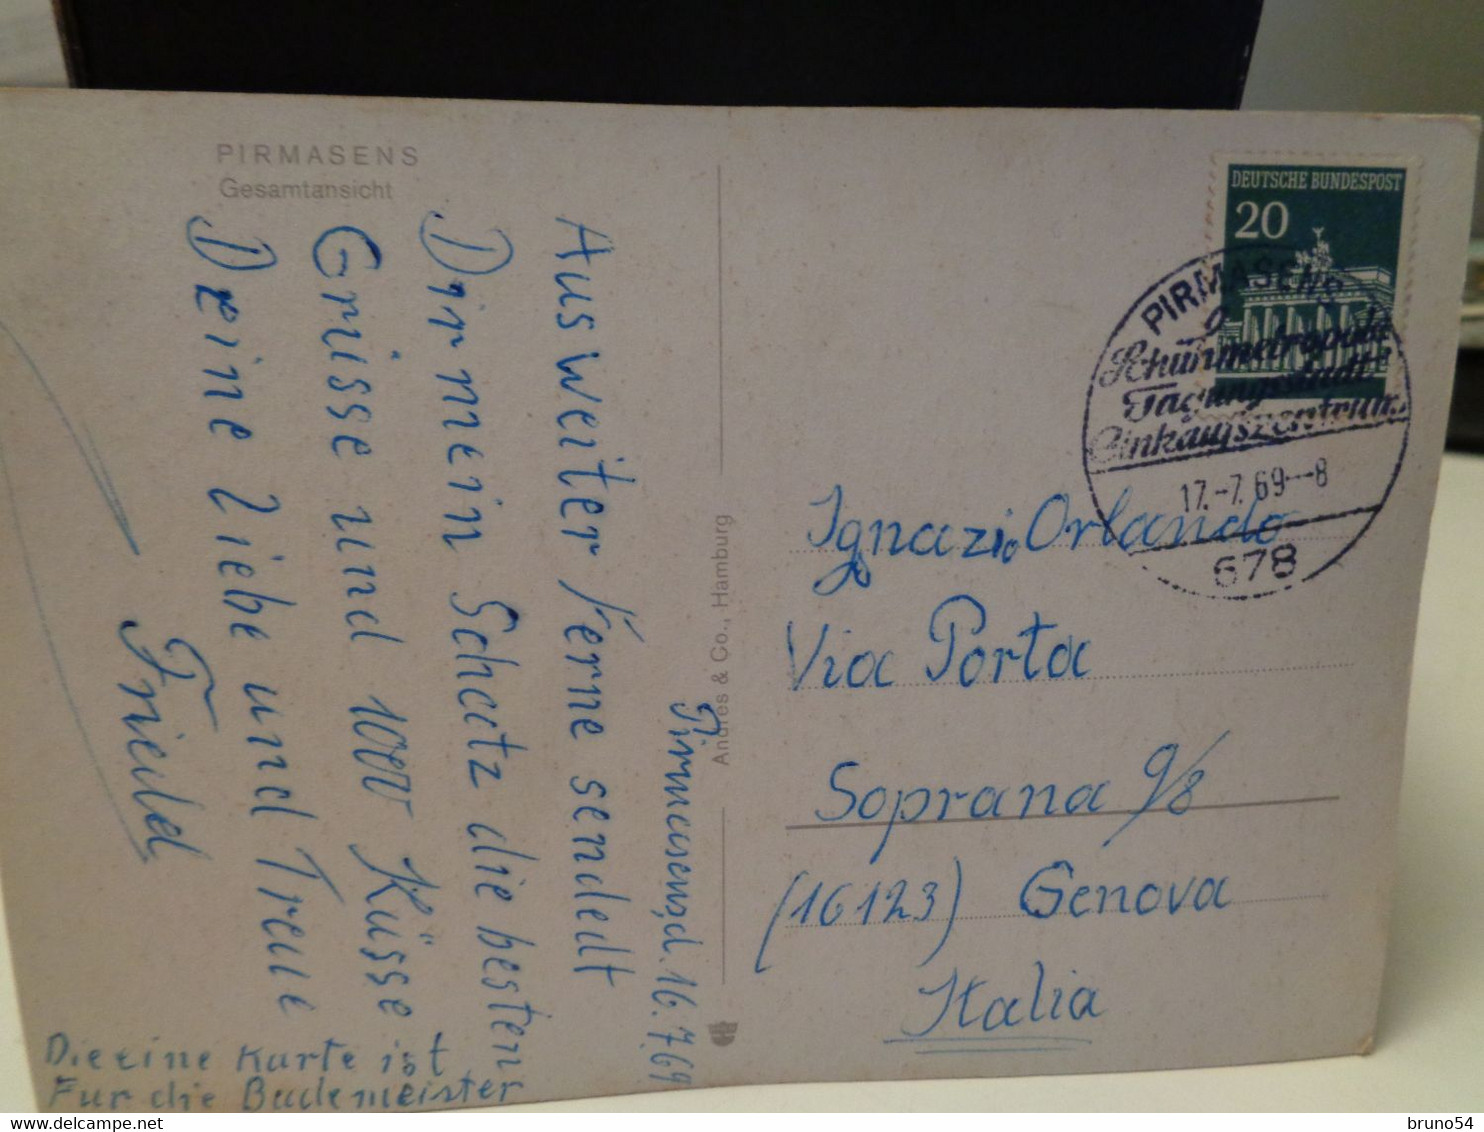 PIRMASENS
Gesamtansicht
Pirmasens,d. 16.7.69
Aus weiter Ferne sendedt
Dir mein Schatz die besten
Grüsse und 1000 Küsse
Deine Liebe und Treue
Frieda
Die eine Karte ist
Fur die Bademeister
Andres & Co., Hamburg
DEUTSCHE BUNDESPOST
20
PIRMASENS
Schuhmetropole
Tagungsstadt
Einkaufszentrum
17.-7.69--8
678
Ignazio Orlando
Via Porta
Soprana 9/8
(16123) Genova
Italia
bruno54